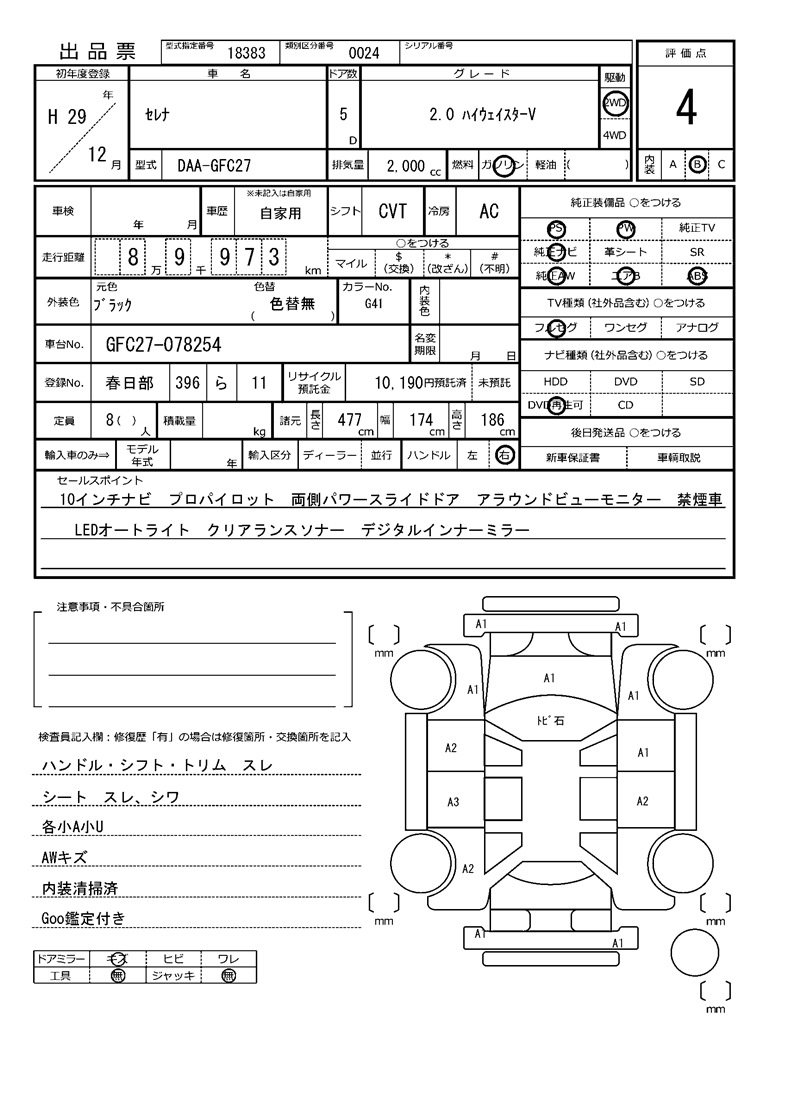 出品票 型式指定番号 18383 類別区分番号 0024 シリアル番号
評価点
4
内装 A B C
初年度登録 車名 ドア数 グレード 駆動
H 29 年 12 月 セレナ 5 D 2.0 ハイウェイスターV 2WD 4WD
型式 DAA-GFC27 排気量 2.000 cc 燃料 ガソリン 軽油 ( )
車検 年 月 車歴 ※未記入は自家用 自家用 シフト CVT 冷房 AC
走行距離 8 万 9 千 9 7 3 km ○をつける
マイル $ (交換) * (改ざん) # (不明)
外装色 元色 ブラック 色替 ( 色替無 ) カラーNo. G41 内装色
車台No. GFC27-078254 名変期限 月 日
登録No. 春日部 396 ら 11 リサイクル預託金 10,190円預託済 未預託
定員 8 ( ) 人 積載量 kg 諸元 長さ 477 cm 幅 174 cm 高さ 186 cm
輸入車のみ⇒ モデル年式 年 輸入区分 ディーラー 並行 ハンドル 左 右
純正装備品 ○をつける
PS PW 純正TV
純正ナビ 革シート SR
純正AW エアB ABS
TV種類(社外品含む) ○をつける
フルセグ ワンセグ アナログ
ナビ種類(社外品含む) ○をつける
HDD DVD SD
DVD再生可 CD
後日発送品 ○をつける
新車保証書 車輌取説
セールスポイント
10インチナビ プロパイロット 両側パワースライドドア アラウンドビューモニター 禁煙車
LEDオートライト クリアランスソナー デジタルインナーミラー
注意事項・不具合箇所
検査員記入欄：修復歴「有」の場合は修復箇所・交換箇所を記入
ハンドル・シフト・トリム スレ
シート スレ、シワ
各小A小U
AWキズ
内装清掃済
Goo鑑定付き
ドアミラー キズ ヒビ ワレ
工具 無 ジャッキ 無
A1 A1
mm mm
A1 A1 A1
トビ石
A2 A1
A3 A2
A2
mm mm
A1 A1
mm